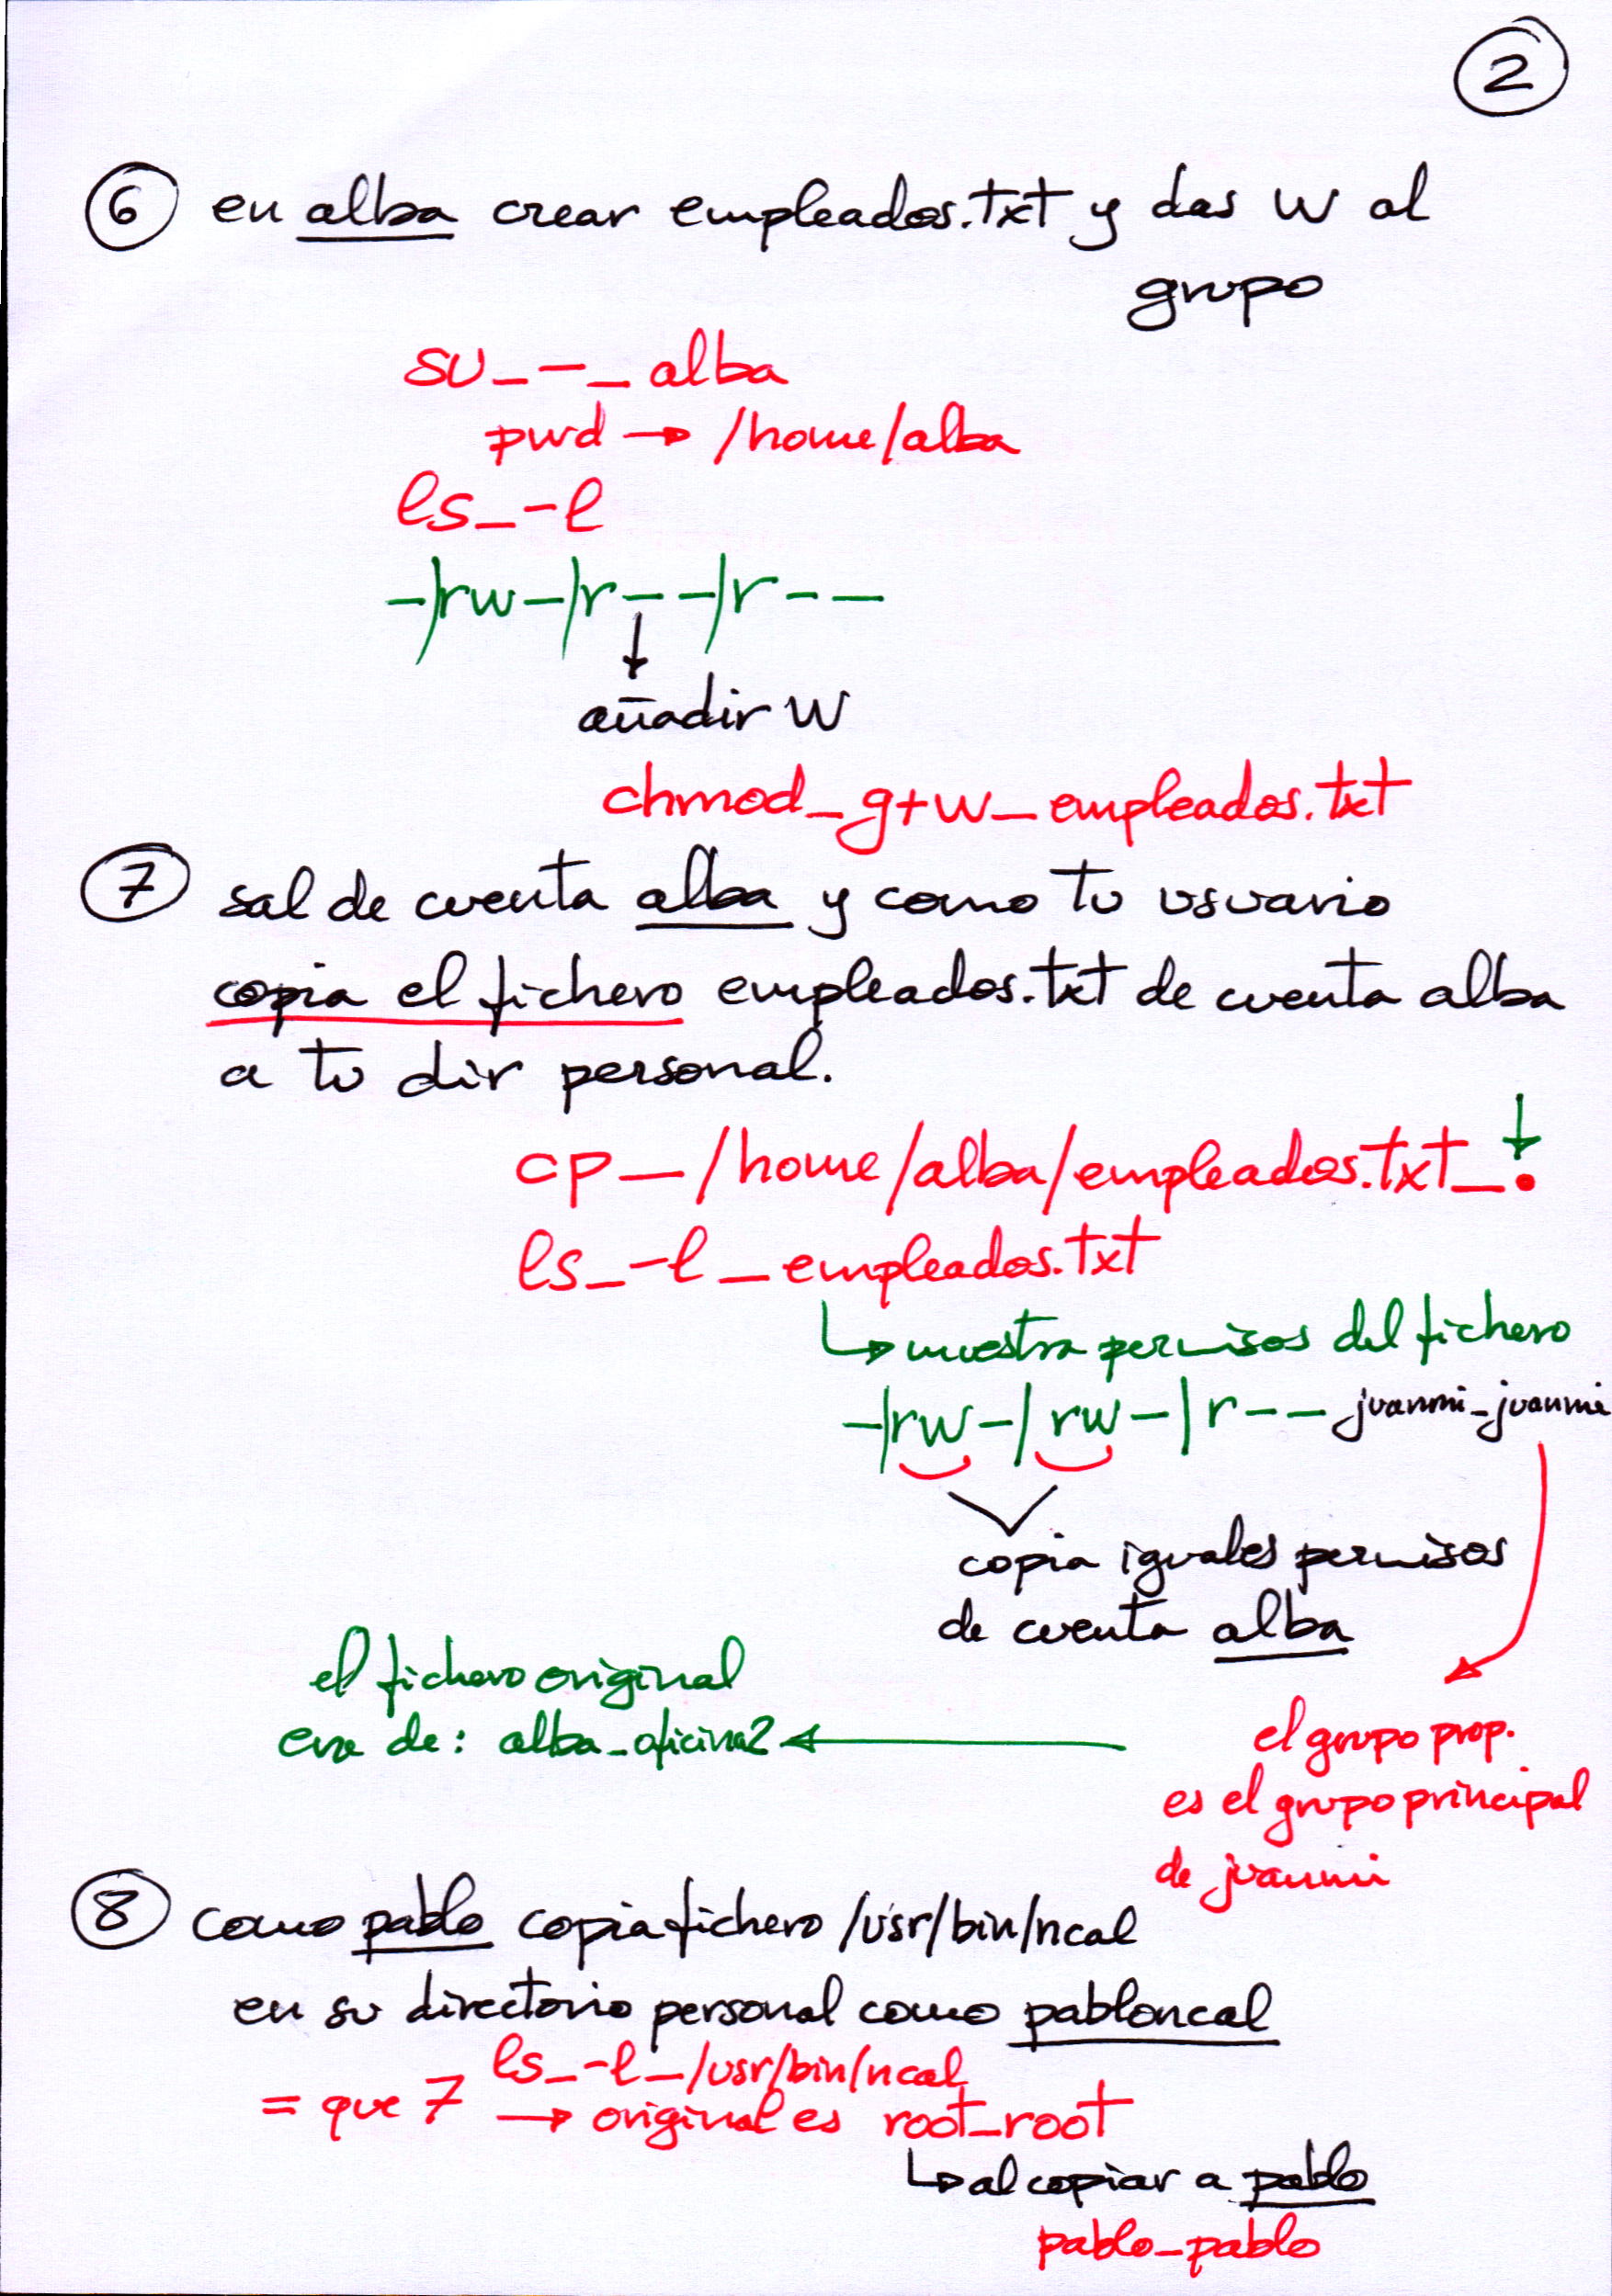 2
6 en alba crear empleados.txt y das w al
grupo
su_-_alba
pwd → /home/alba
ls_-l
-|rw-|r--|r--
↓
añadir w
chmod_g+w_empleados.txt
7 sal de cuenta alba y como tu usuario
copia el fichero empleados.txt de cuenta alba
a tu dir personal.
↓
cp_/home/alba/empleados.txt_.
ls_-l_empleados.txt
↳ muestra permisos del fichero
-|rw-|rw-|r-- juanmi_juanmi
copia iguales permisos
de cuenta alba
el fichero original
era de: alba_oficina2 ←
el grupo prop.
es el grupo principal
de juanmi
8 como pablo copia fichero /usr/bin/ncal
en su directorio personal como pabloncal
ls_-l_/usr/bin/ncal
= que 7 → original es root_root
↳ al copiar a pablo
pablo_pablo